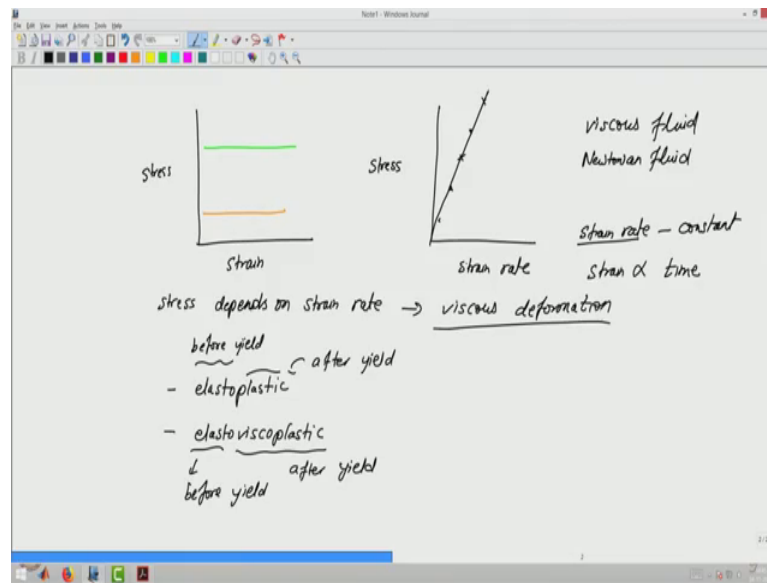 Note1 - Windows Journal
File Edit View Insert Actions Tools Help
B I
Stress
Strain
Stress
Strain rate
viscous fluid
Newtonian fluid
Strain rate - constant
Stran ∝ time
stress depends on strain rate → viscous deformation
before yield
after yield
- elastoplastic
- elastoviscoplastic
before yield
after yield